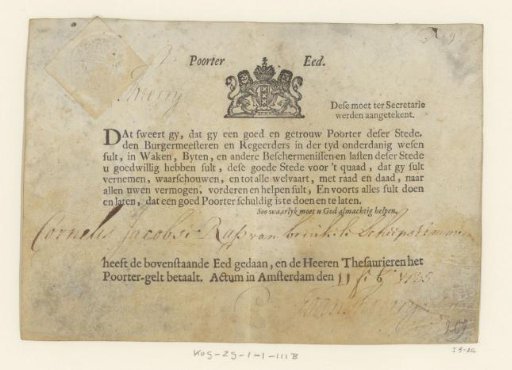 Poorter Eed.
Dese moet ter Secretarie
werden aangetekent.
DAt sweert gy, dat gy een goed en getrouw Poorter deser Stede.
den Burgermeesteren en Regeerders in der tyd onderdanig wesen
sult, in Waken, Byten, en andere Beschermenissen en lasten deser Stede
u goedwillig hebben sult, dese goede Stede voor 't quaad, dat gy sult
vernemen, waarschouwen, en tot alle welvaart, met raad en daad, naar
allen uwen vermogen, vorderen en helpen sult, En voorts alles sult doen
en laten, dat een goed Poorter schuldig is te doen en te laten.
Soo waarlyk moet u God almachtig helpen,
Cornelis Jacobse van
heeft de bovenstaande Eed gedaan, en de Heeren Thesaurieren het
Poorter-gelt betaalt. Actum in Amsterdam den 11
KOG-ZG-1-1-111B